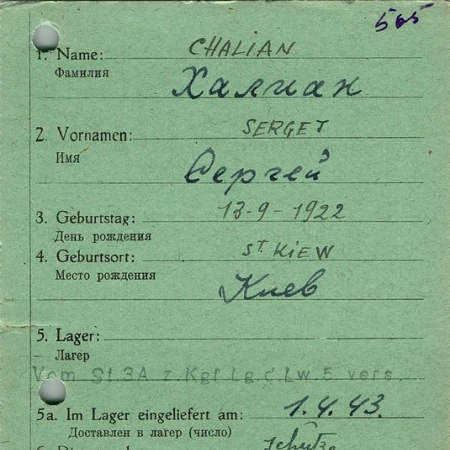 565
1. Name: CHALIAN
Фамилия Халиан
2. Vornamen: SERGEJ
Имя Сергей
3. Geburtstag: 13-9-1922
День рождения
4. Geburtsort: St. KiEW
Место рождения Киев
5. Lager:
Лагер
Vom St.3A z.Kgf.Lg.d.Lw.5 vers.
5a. Im Lager eingeliefert am: 1.4.43.
Доставлен в лагер (число)
Schütze